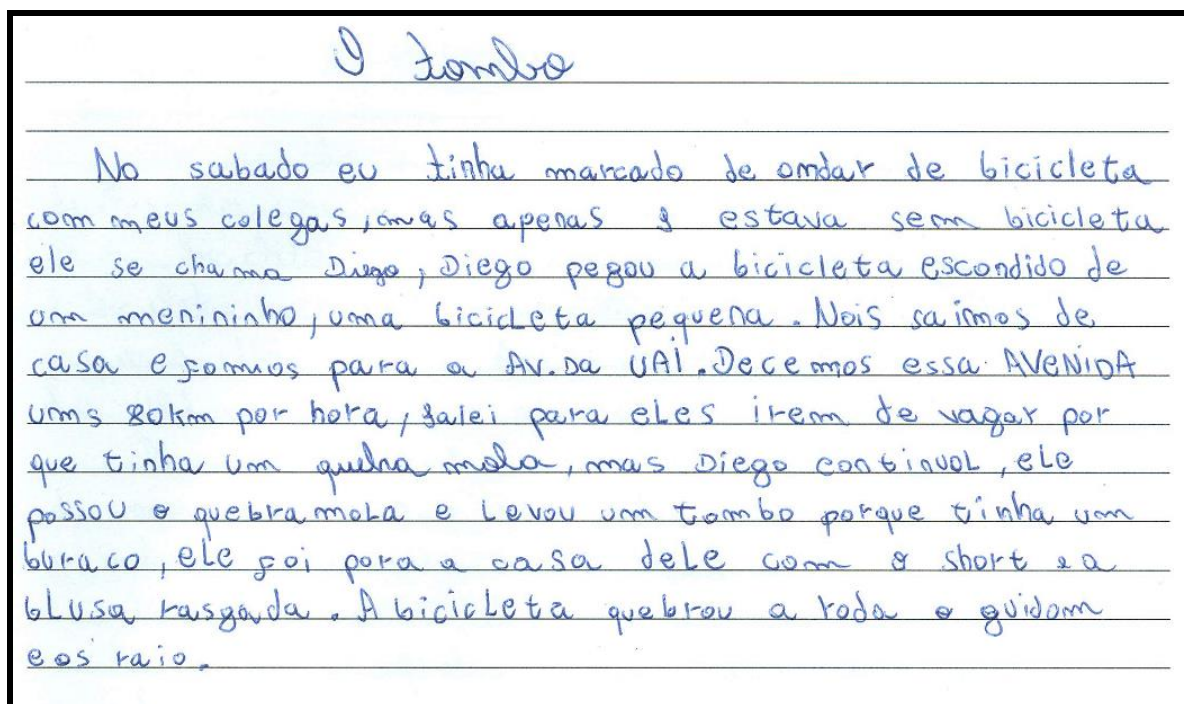 O tombo
No sabado eu tinha marcado de omdar de bicicleta
com meus colegas, mas apenas 1 estava sem bicicleta
ele se chama Diego, Diego pegou a bicicleta escondido de
um menininho, uma bicicleta pequena. Nois saímos de
casa e fomos para a AV. Da UAI. Decemos essa AVENIDA
ums 80km por hora, falei para eles irem de vagar por
que tinha um quebra mola, mas Diego continuol, ele
possou o quebra mola e levou um tombo porque tinha um
buraco, ele foi para a casa dele com o short e a
blusa rasgada. A bicicleta quebrou a roda o guidom
e os raio.